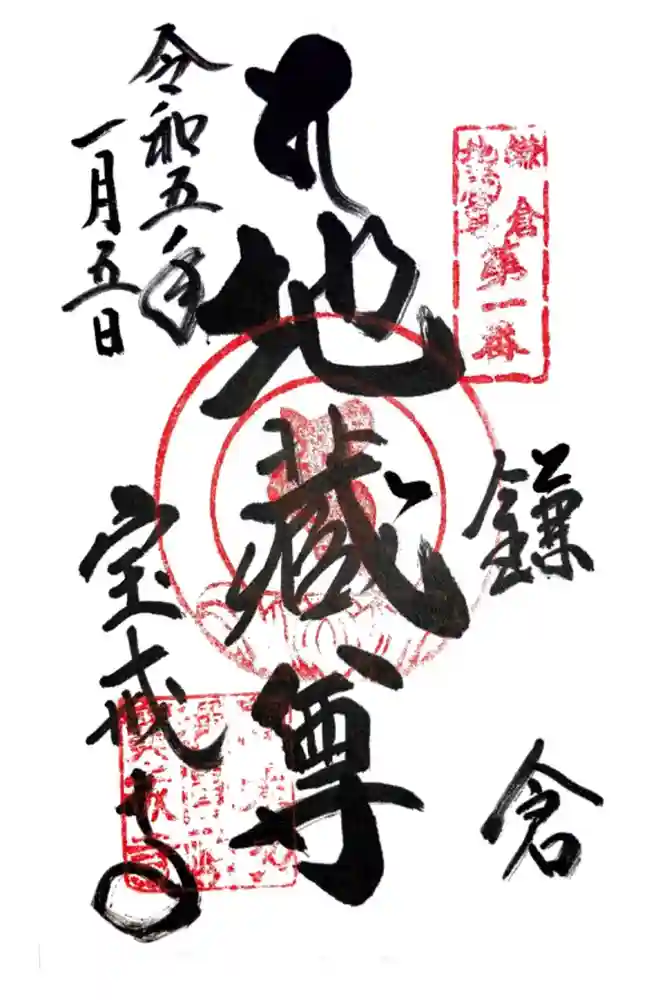 鎌倉
地蔵尊
第一番
鎌倉
地蔵尊
令和五年
一月五日
宝戒寺